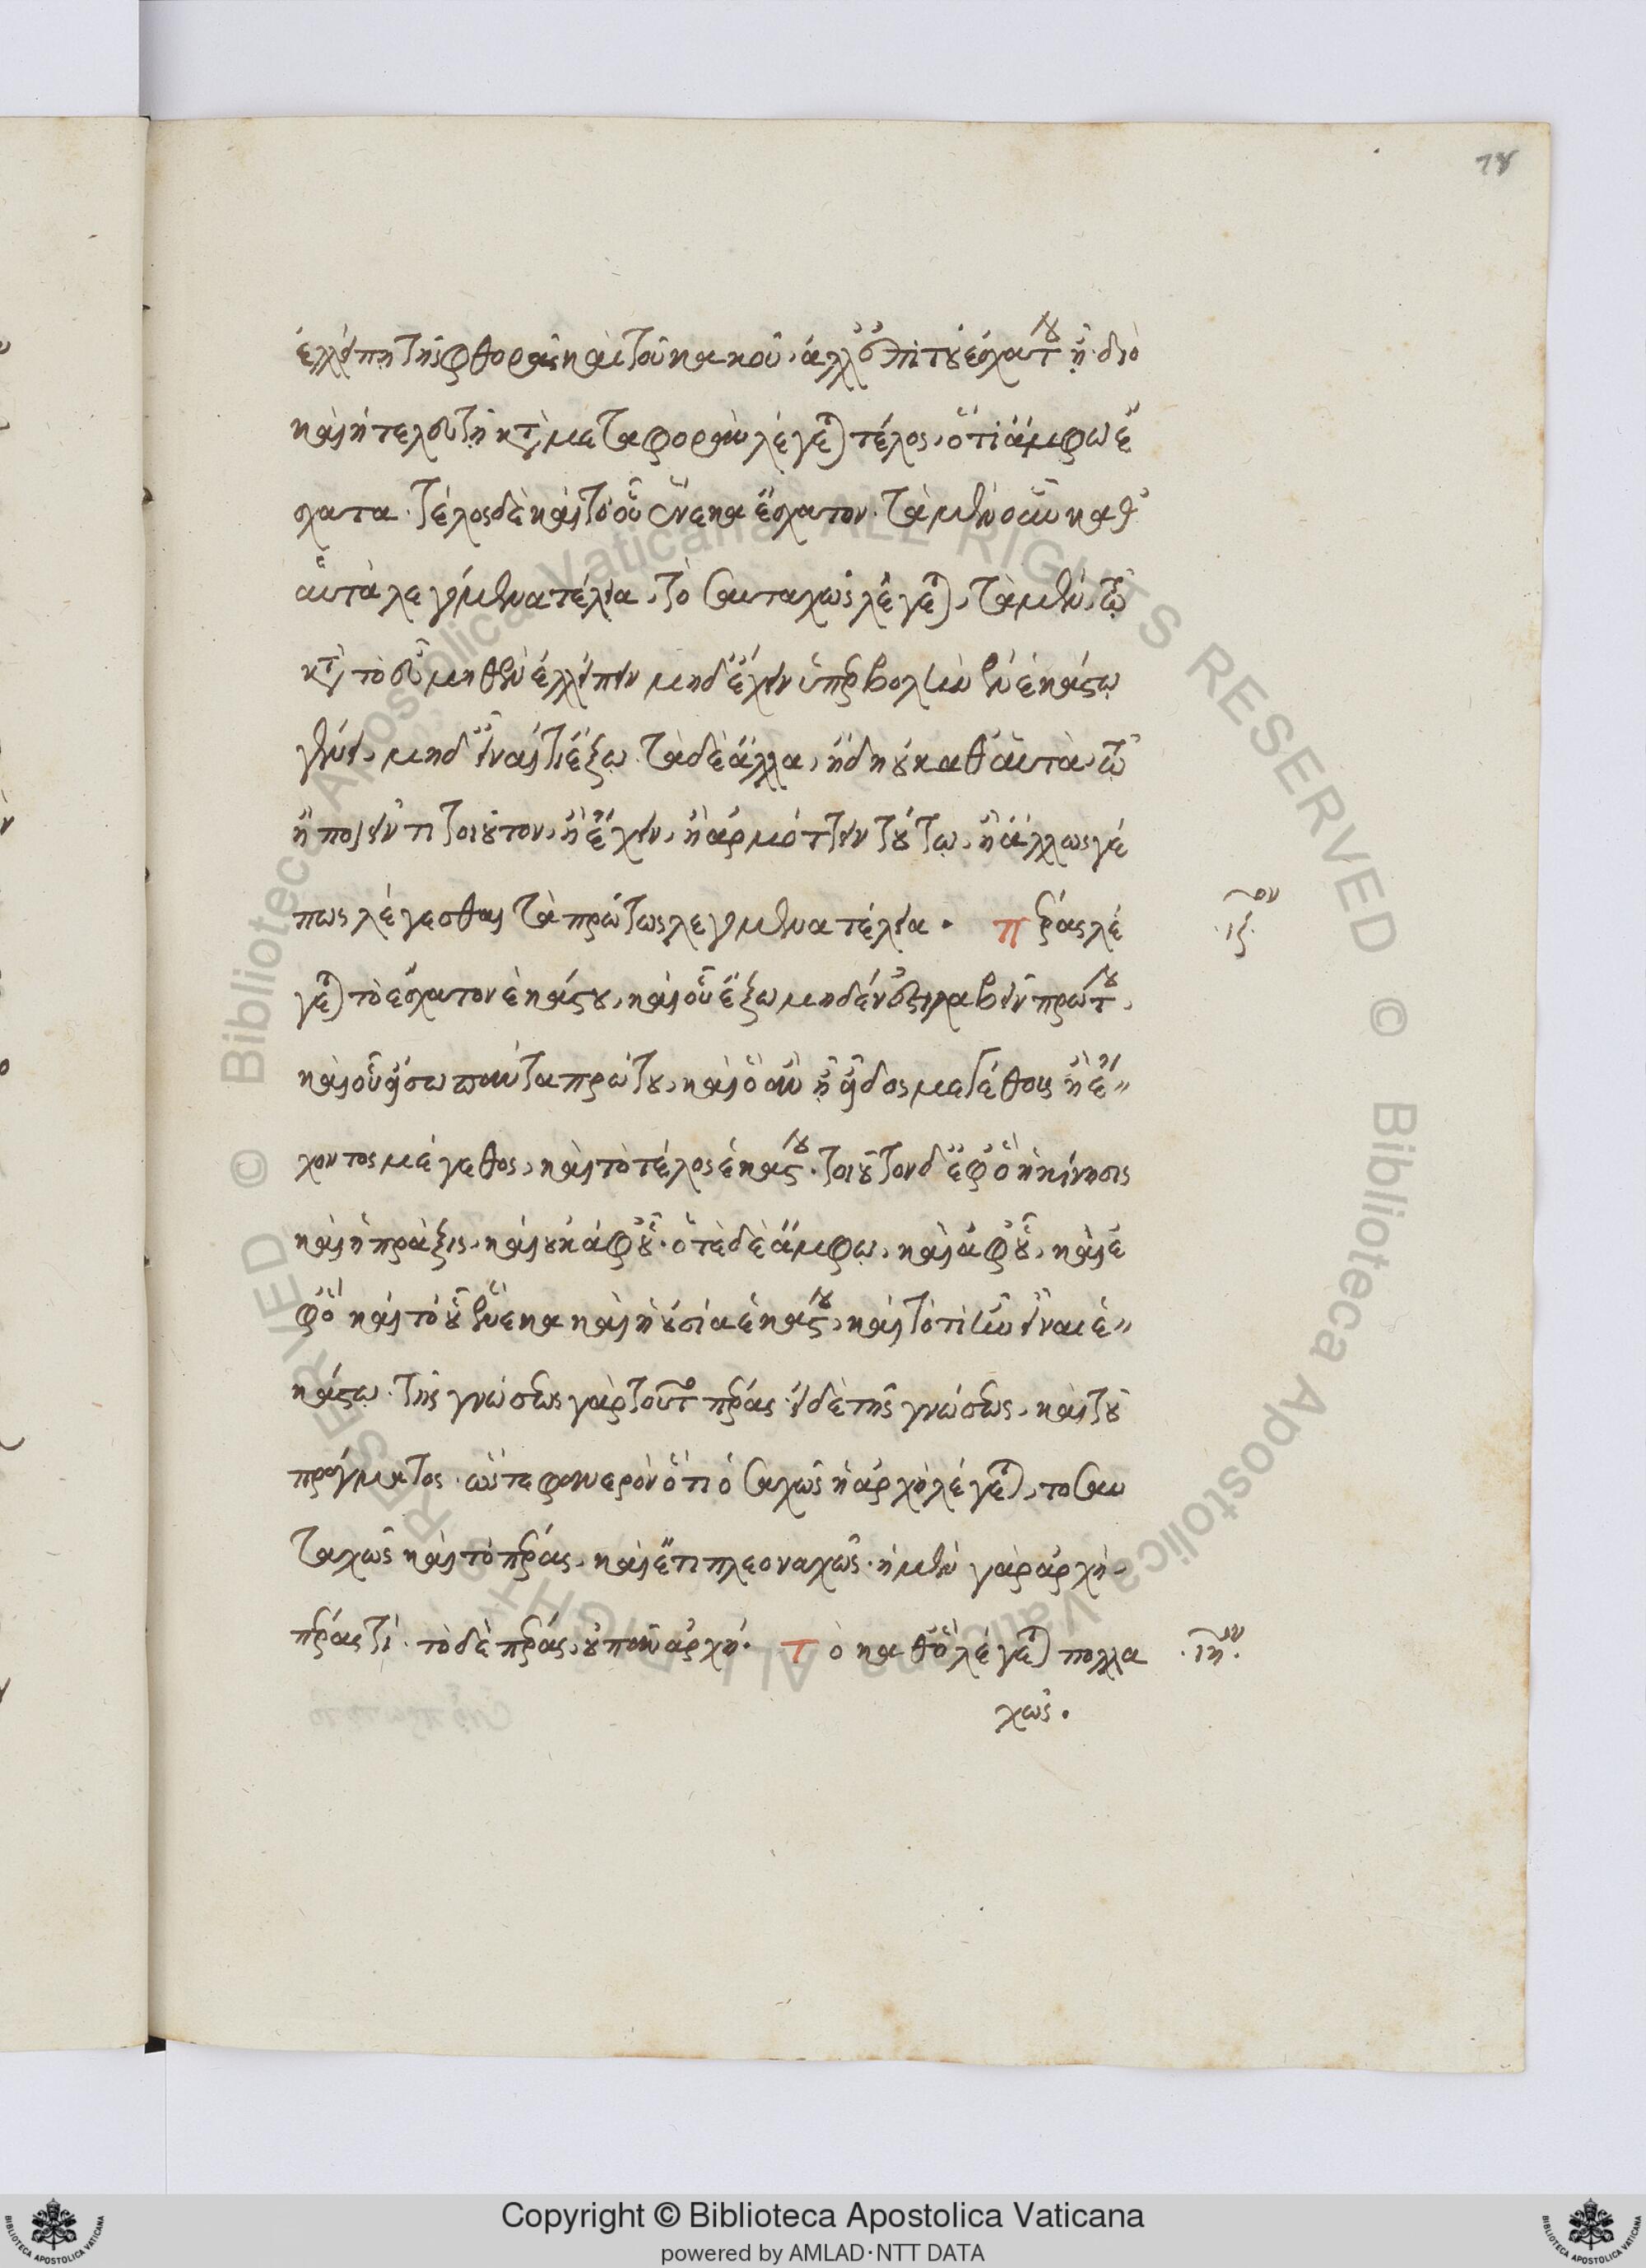 78
ἐλλείπῃ τῆς φθορᾶς καὶ τοῦ κακοῦ, ἀλλ' ἐπὶ τοῦ ἐσχάτου ᾖ· διὸ
καὶ ἡ τελευτὴ κατὰ μεταφορὰν λέγεται τέλος, ὅτι ἄμφω ἔ
σχατα· τέλος δὲ καὶ τὸ οὗ ἕνεκα ἔσχατον· τὰ μὲν οὖν καθ'
αὑτὰ λεγόμενα τέλεια, τοσαυταχῶς λέγεται, τὰ μὲν, τῷ
κατὰ τὸ εὖ μηθὲν ἐλλείπειν μηδ' ἔχειν ὑπερβολὴν ἐν ἑκάστῳ
γένει, μηδ' εἶναί τι ἔξω· τὰ δὲ ἄλλα, ἤδη οὐ καθ' αὑτὰ, τῷ
ἢ ποιεῖν τι τοιοῦτον, ἢ ἔχειν, ἢ ἁρμόττειν τούτῳ, ἢ ἄλλως γέ
πως λέγεσθαι τὰ πρώτως λεγόμενα τέλεια. πέρας λέ
·ιζ·ον
γεται τὸ ἔσχατον ἑκάστου, καὶ οὗ ἔξω μηδὲν ἔστι λαβεῖν πρώτου,
καὶ οὗ εἴσω πάντα πρώτου, καὶ ὃ ἂν ᾖ εἶδος μεγέθους ἢ ἔ
χοντος μέγεθος, καὶ τὸ τέλος ἑκάστου· τοιοῦτον δ' ἐφ' ὃ ἡ κίνησις
καὶ ἡ πρᾶξις, καὶ οὐκ ἀφ' οὗ· ὁτὲ δὲ ἄμφω, καὶ ἀφ' οὗ, καὶ ἐ
φ' ὃ καὶ τὸ οὗ ἕνεκα καὶ ἡ οὐσία ἑκάστου, καὶ τὸ τί ἦν εἶναι ἑ
κάστῳ· τῆς γνώσεως γὰρ τοῦτο πέρας· εἰ δὲ τῆς γνώσεως, καὶ τοῦ
πράγματος· ὥστε φανερὸν ὅτι ὁσαχῶς ἡ ἀρχὴ λέγεται, τοσαυ
ταχῶς καὶ τὸ πέρας, καὶ ἔτι πλεοναχῶς· ἡ μὲν γὰρ ἀρχὴ
πέρας τι· τὸ δὲ πέρας, οὐ πᾶν ἀρχή. τὸ καθ' ὃ λέγεται πολλα
·ιη·ον
χῶς.
Copyright © Biblioteca Apostolica Vaticana
powered by AMLAD·NTT DATA